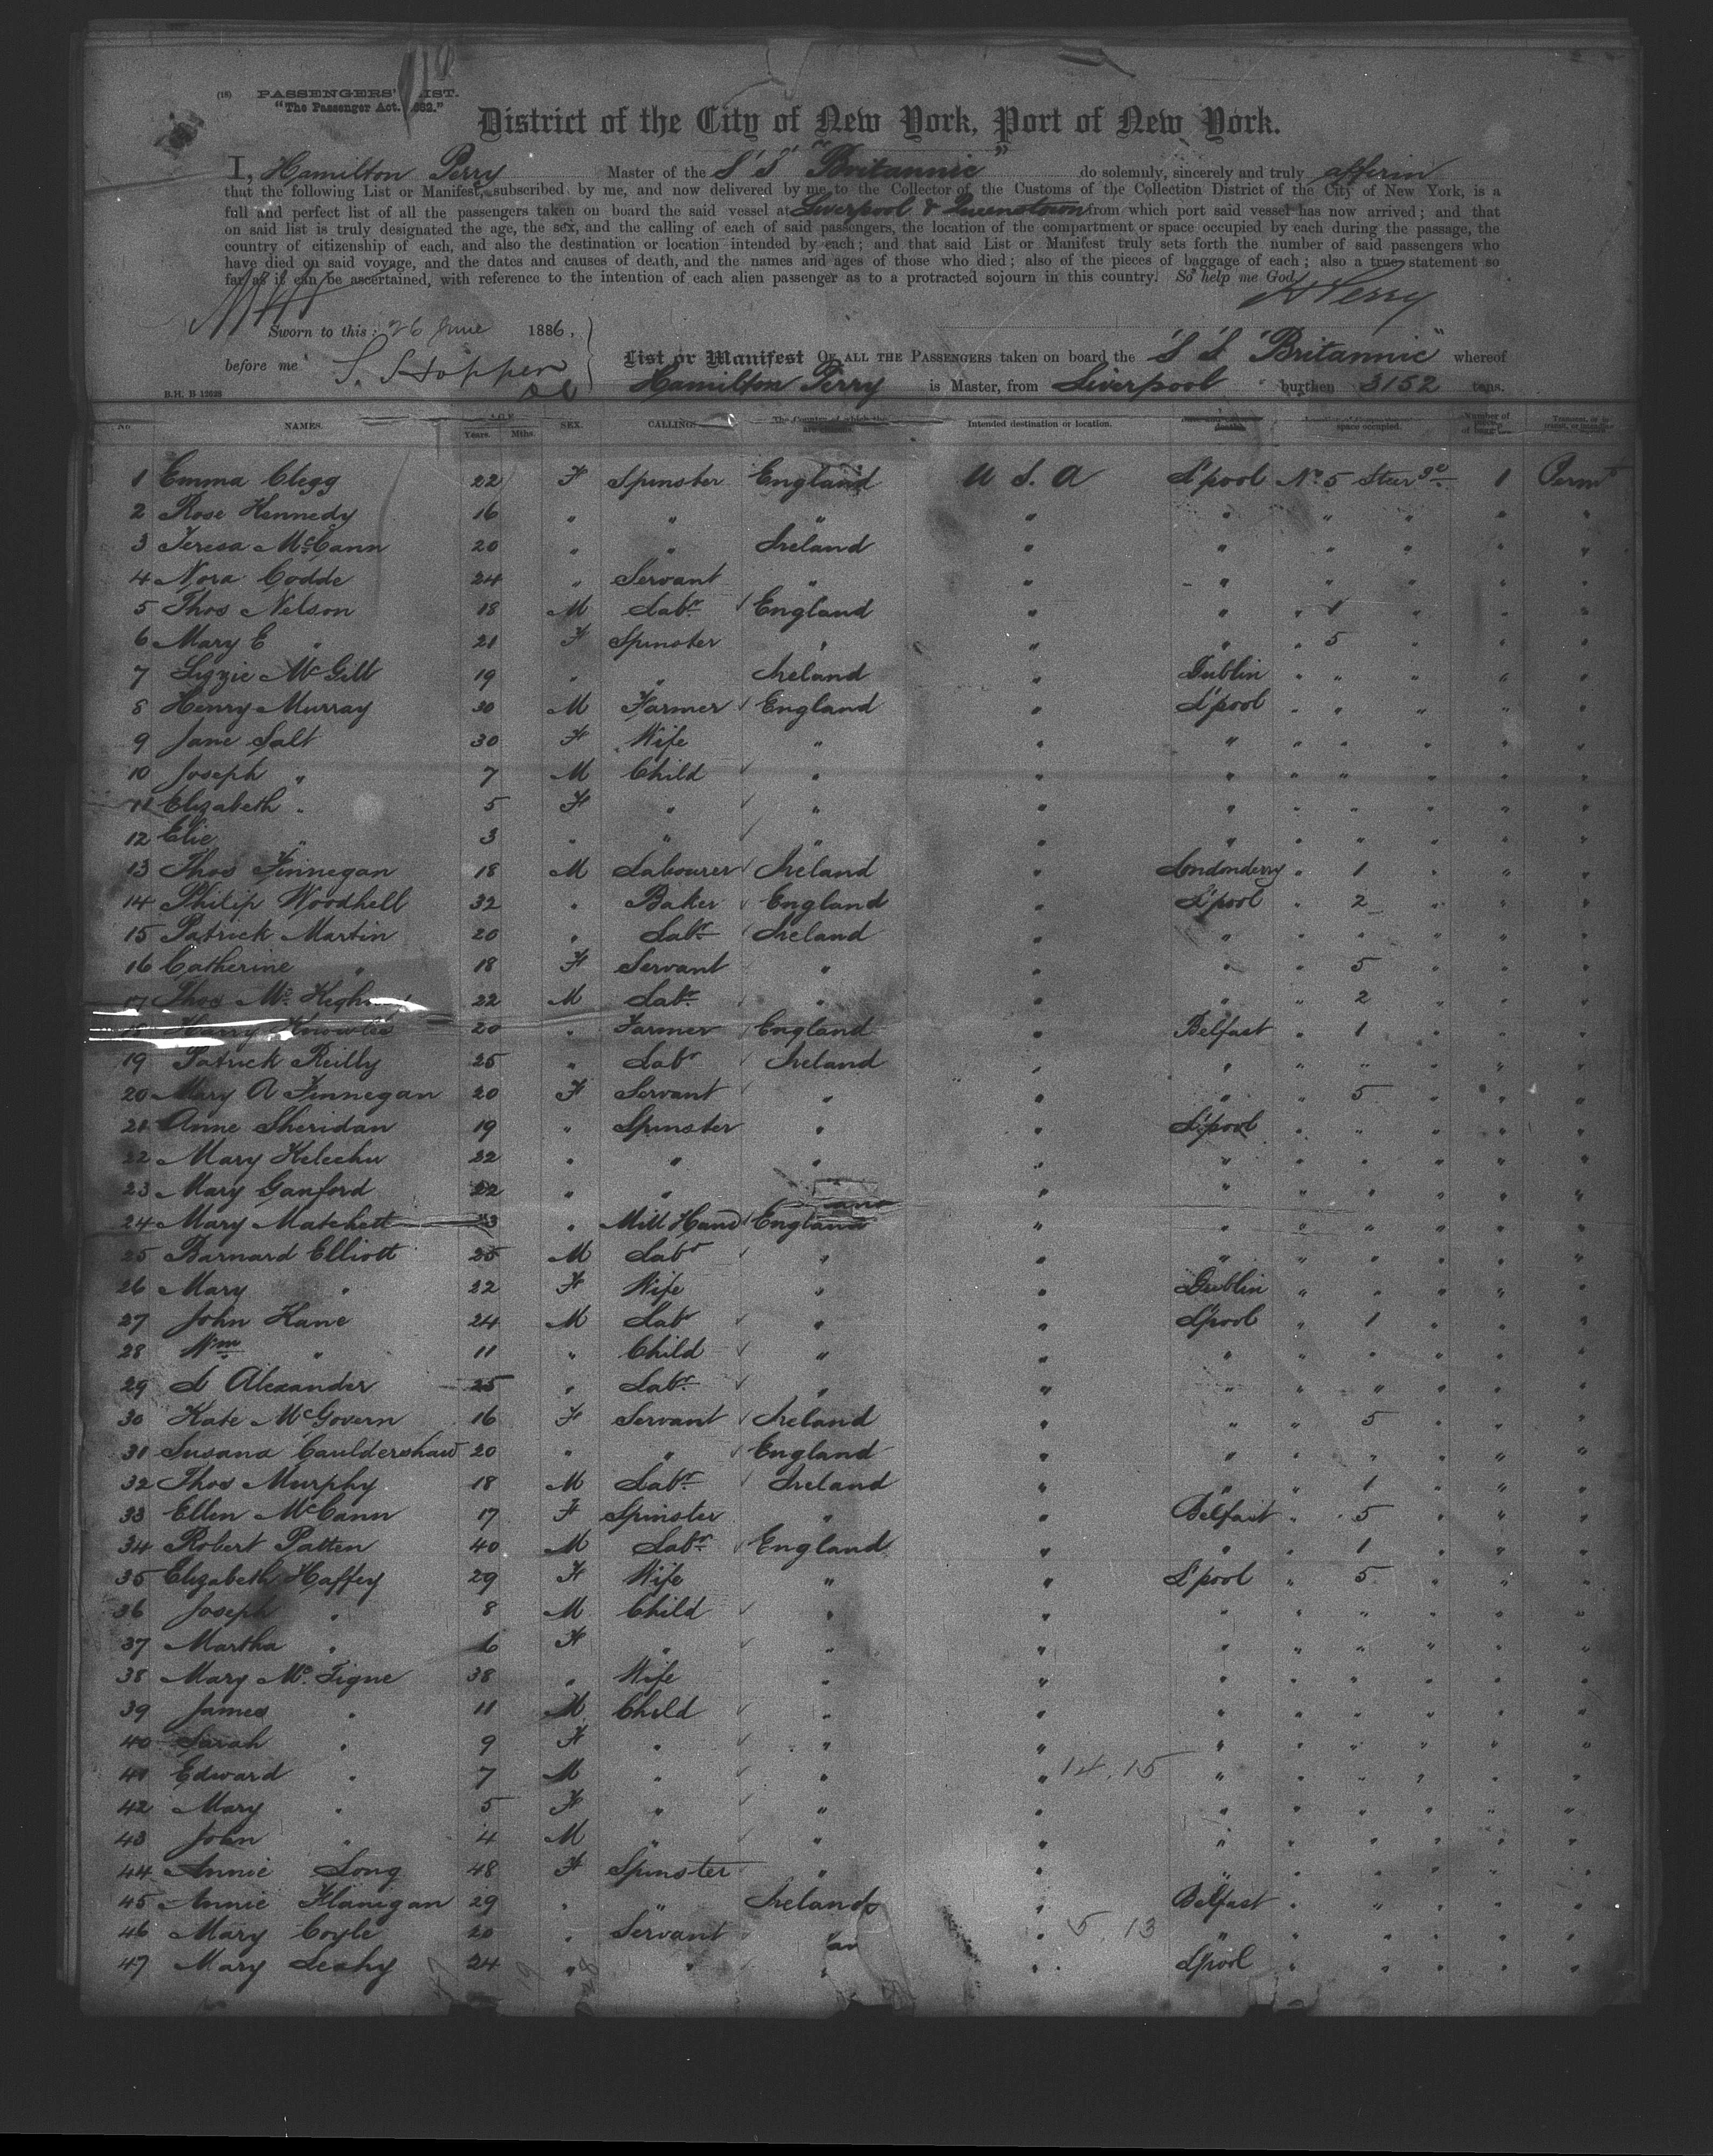 (18) PASSENGERS' LIST.
"The Passenger Act. 1882."
District of the City of New York, Port of New York.
I, Hamilton Perry Master of the S. S. "Britannic" do solemnly, sincerely and truly affirm
that the following List or Manifest, subscribed by me, and now delivered by me to the Collector of the Customs of the Collection District of the City of New York, is a
full and perfect list of all the passengers taken on board the said vessel at Liverpool & Queenstown from which port said vessel has now arrived; and that
on said list is truly designated the age, the sex, and the calling of each of said passengers, the location of the compartment or space occupied by each during the passage, the
country of citizenship of each, and also the destination or location intended by each; and that said List or Manifest truly sets forth the number of said passengers who
have died on said voyage, and the dates and causes of death, and the names and ages of those who died; also of the pieces of baggage of each; also a true statement so
far as it can be ascertained, with reference to the intention of each alien passenger as to a protracted sojourn in this country. So help me God.
H Perry
Sworn to this: 26 June 1886,
before me
List or Manifest OF ALL THE PASSENGERS taken on board the S. S. "Britannic" whereof
Hamilton Perry is Master, from Liverpool burthen 3152 tons.
B.H. B 12628
No. NAMES. AGE Years. Mths. SEX. CALLING. The Country of which they are citizens. Intended destination or location. space occupied. Number of pieces of baggage.
1 Emma Clegg 22 F Spinster England U S. A L'pool No 5 Steerge 1 Permt
2 Rose Kennedy 16 " " " " " " " " "
3 Teresa McCann 20 " " Ireland " " " " " "
4 Nora Codde 24 " Servant " " " " " " "
5 Thos Nelson 18 M Labr England " " " 1 " " "
6 Mary E " 21 F Spinster " " " " 5 " " "
7 Lizzie McGill 19 " " Ireland " Dublin " " " " "
8 Henry Murray 30 M Farmer England " L'pool " " " " "
9 Jane Salt 30 F Wife " " " " " " " "
10 Joseph " 7 M Child " " " " " " " "
11 Elizabeth " 5 F " " " " " " " " "
12 Elie " 3 " " " " " " " " " "
13 Thos Finnegan 18 M Labourer Ireland " Londonderry " 1 " " "
14 Philip Woodhell 32 " Baker England " L'pool " 2 " " "
15 Patrick Martin 20 " Labr Ireland " " " " " " "
16 Catherine " 18 F Servant " " " " 5 " " "
17 Thos 22 M Labr " " " " 2 " " "
18 Harry Knowles 20 " Farmer England " Belfast " 1 " " "
19 Patrick Reilly 25 " Labr Ireland " " " " " " "
20 Mary A Finnegan 20 F Servant " " " " 5 " " "
21 Anne Sheridan 19 " Spinster " " L'pool " " " " "
22 Mary Kelechu 22 " " " " " " " " " "
23 Mary Ganford 22 " " " " " " " " " "
24 Mary Matchett " Mill Hand England " " " " " " "
25 Barnard Elliott 25 M Labr " " " " " " " "
26 Mary " 22 F Wife " " Dublin " " " " "
27 John Kane 24 M Labr " " L'pool " 1 " " "
28 Wm " 11 " Child " " " " " " " "
29 L Alexander 25 " Labr " " " " " " " "
30 Kate McGovern 16 F Servant Ireland " " " 5 " " "
31 Susana Cauldershaw 20 " " England " " " " " " "
32 Thos Murphy 18 M Labr Ireland " " " 1 " " "
33 Ellen McCann 17 F Spinster " " Belfast " 5 " " "
34 Robert Patten 40 M Labr England " " " 1 " " "
35 Elizabeth Haffey 29 F Wife " " L'pool " 5 " " "
36 Joseph " 8 M Child " " " " " " " "
37 Martha " 6 F " " " " " " " " "
38 Mary McTigne 38 " Wife " " " " " " " "
39 James " 11 M Child " " " " " " " "
40 Sarah " 9 F " " " " " " " " "
41 Edward " 7 M " " " 14.15 " " " " " "
42 Mary " 5 F " " " " " " " " "
43 John " 4 M " " " " " " " " "
44 Annie Long 48 F Spinster " " " " " " " "
45 Annie Flanigan 29 " " Ireland " Belfast " " " " "
46 Mary Coyle 20 " Servant " " 5.13 " " " " " "
47 Mary Leahy 24 " " " " L'pool " " " " "